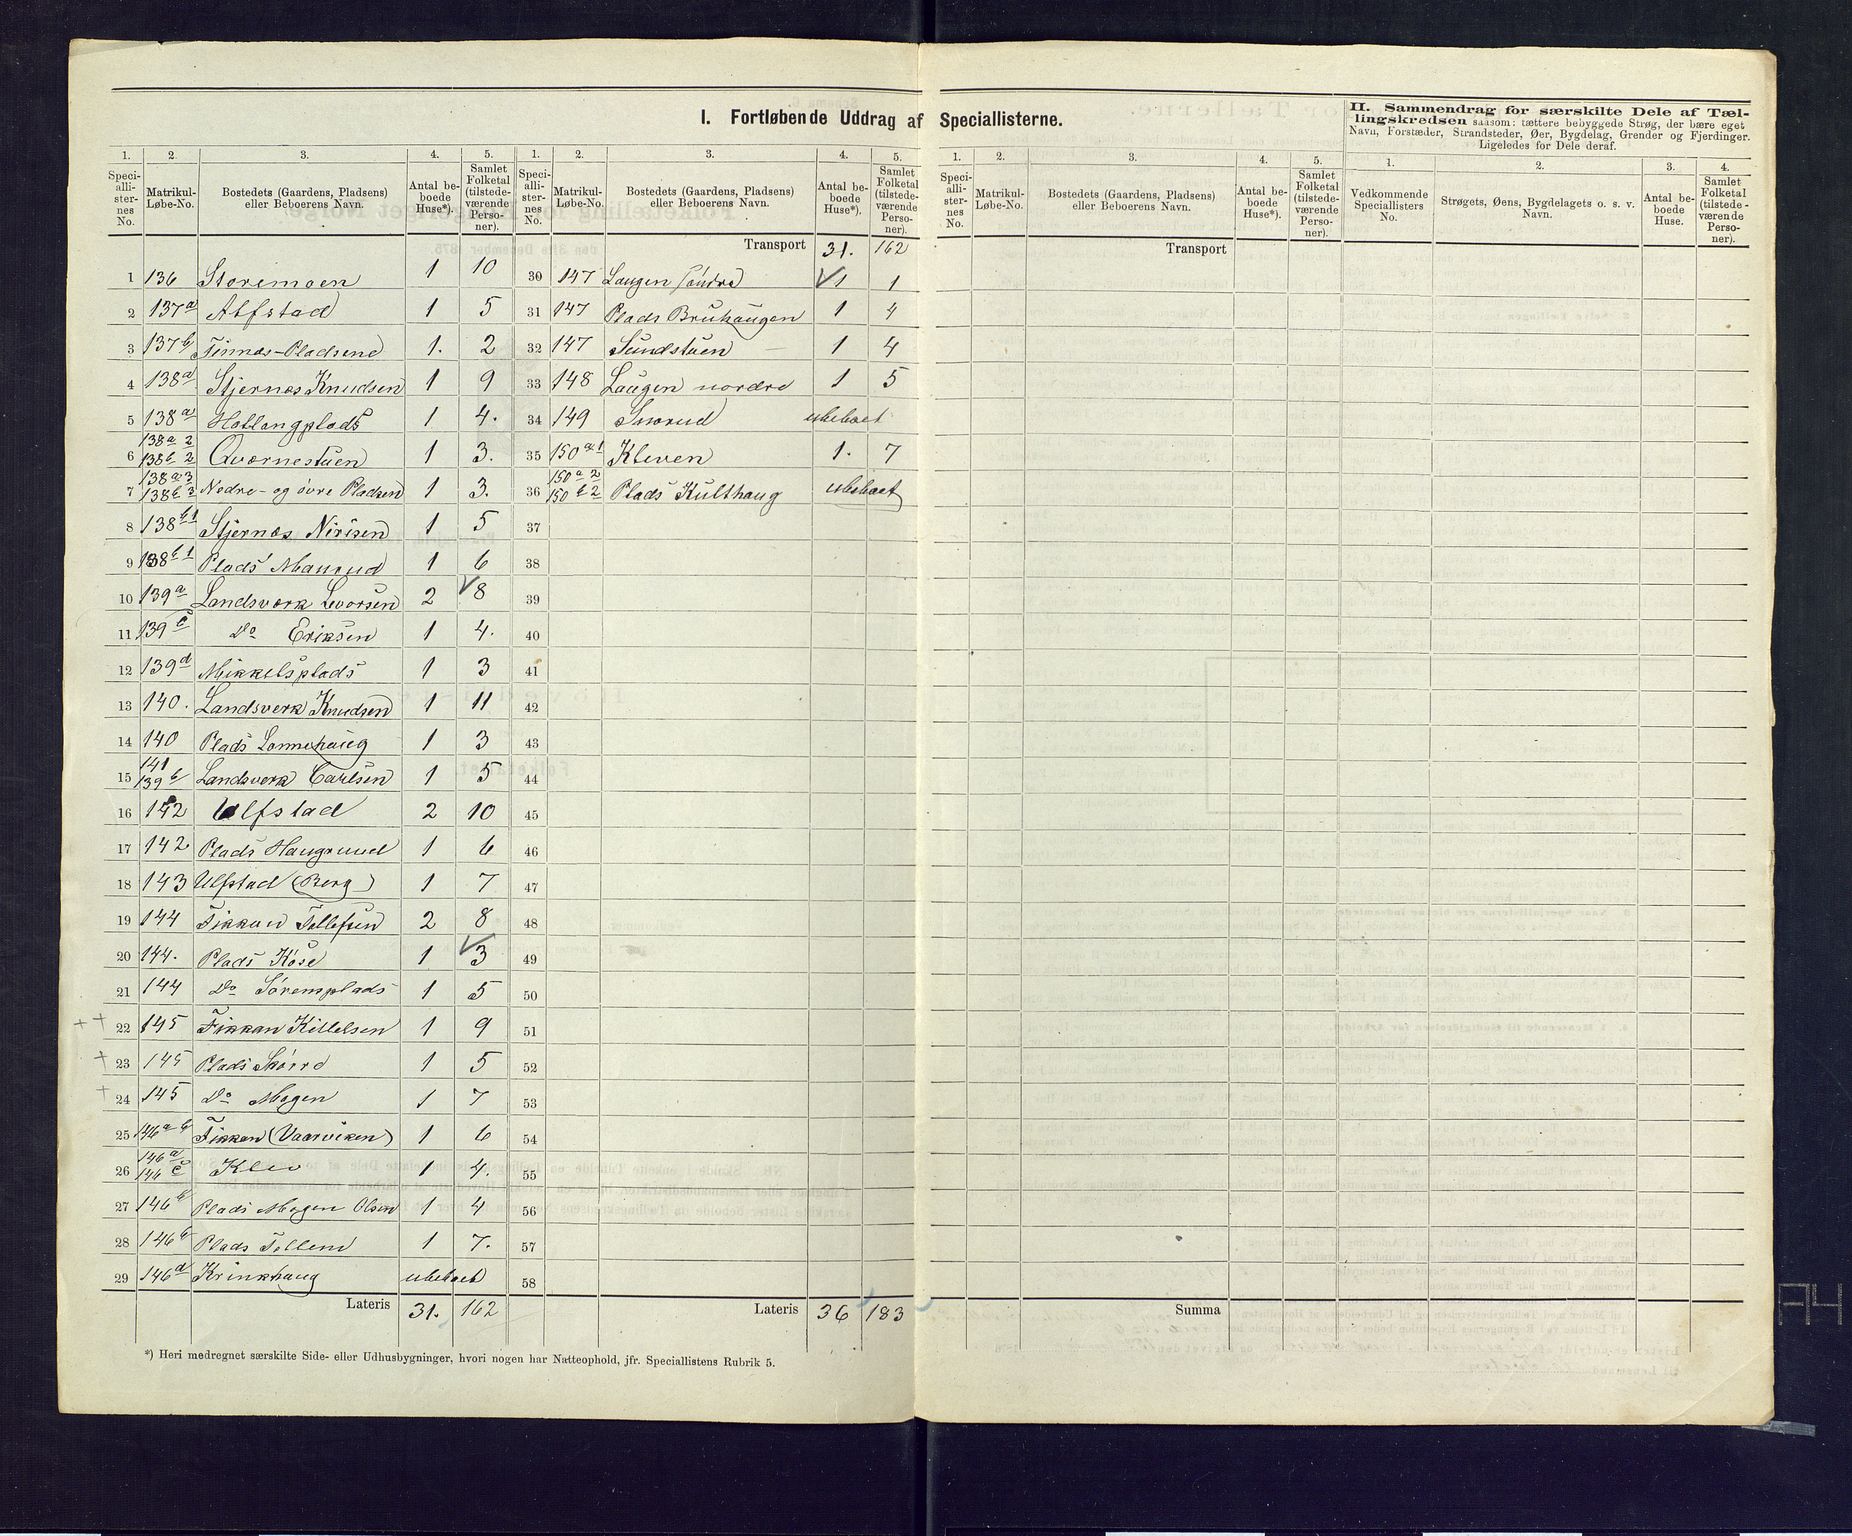 I. Fortløbende Uddrag af Speciallisterne.
II. Sammendrag for særskilte Dele af Tæl-
lingskredsen saasom: tættere bebyggede Strøg, der bære eget
Navn, Forstæder, Strandsteder, Øer, Bygdelag, Grender og Fjerdinger.
Ligeledes for Dele deraf.
1. 2. 3. 4. 5. 1. 2. 3. 4. 5. 1. 2. 3. 4. 5. 1. 2. 3. 4.
Speciallisternes No. Matrikul-Løbe-No. Bostedets (Gaardens, Pladsens) eller Beboerens Navn. Antal beboede Huse*). Samlet Folketal (tilstedeværende Personer).
Speciallisternes No. Matrikul-Løbe-No. Bostedets (Gaardens, Pladsens) eller Beboerens Navn. Antal beboede Huse*). Samlet Folketal (tilstedeværende Personer).
Speciallisternes No. Matrikul-Løbe-No. Bostedets (Gaardens, Pladsens) eller Beboerens Navn. Antal beboede Huse*). Samlet Folketal (tilstedeværende Personer).
Vedkommende Speciallisters No. Strøgets, Øens, Bygdelagets o. s. v. Navn. Antal beboede Huse. Samlet Folketal (tilstedeværende Personer).
1 136 Storemoen 1 10
2 137a Alfstad 1 5
3 137b Finnæs-Pladsene 1. 2
4 138a Stjernæs Knudsen 1 9
5 138a Hallangplads 1 4.
6 138a 2 138b 2 Qværnestuen 1 3.
7 138a 3 138b 3 Nedre- og øvre Pladsen 1 3.
8 138b1 Stjernæs Nirisen 1 5
9 138b1 Plads Maurud 1 6
10 139a Landsværk Levorsen 2 8
11 139c Do Eriksen 1 4.
12 139d Mikkelsplads 1 3
13 140. Landsverk Knudsen 1 11
14 140 Plads Lonnehaug 1 3
15 141 139b Landsverk Carlsen 1 5
16 142 Ulfstad 2 10
17 142 Plads Haugrund 1 6
18 143 Ulfstad (Berg) 1 7
19 144 Fikkan Tollefsen 2 8
20 144. Plads Kose 1 3
21 144 Do Sørensplads 1 5
22 145 Fikkan Kittelsen 1 9
23 145 Plads Skorro 1 5
24 145 Do Mogen 1 7
25 146a b Fikkan (Vaarviken) 1 6
26 146a 146c Klev 1 4.
27 146b Plads Mogen Olsen 1 4
28 146b Plads Tollem 1 7.
29 146d Krinkhaug ubeboet
Lateris 31. 162
Transport 31. 162
30 147 Laugen søndre 1 1
31 147 Plads Bruhaugen 1 4
32 147 Sundstuen 1 4
33 148 Laugen nordre 1 5
34 149 Snorud ubeboet
35 150a1 Kleven 1. 7
36 150a2 150b2 Plads Kulthaug ubeboet
37
38
39
40
41
42
43
44
45
46
47
48
49
50
51
52
53
54
55
56
57
58
Lateris 36 183
Transport
Summa
*) Heri medregnet særskilte Side- eller Udhusbygninger, hvori nogen har Natteophold, jfr. Speciallistens Rubrik 5.